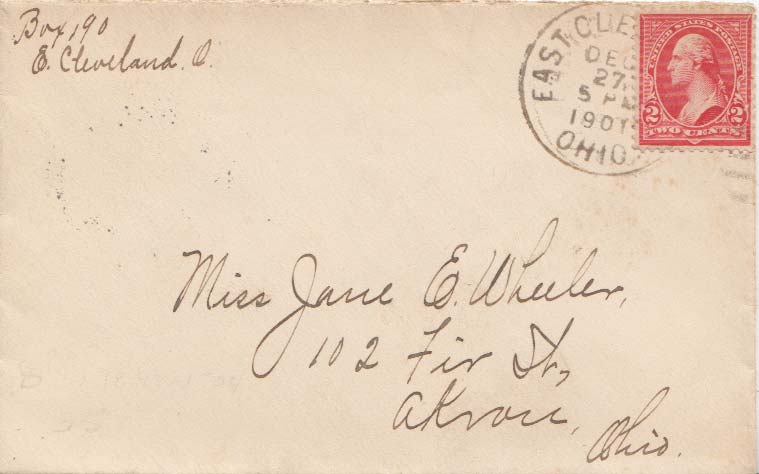 Box 190
E. Cleveland. O.
EAST CLEV
DEC
27
5 PM
1901
OHIO
UNITED STATES POSTAGE
2 2
TWO CENTS
Miss Jane E. Wheeler,
102 Fir St,
Akron,
Ohio.